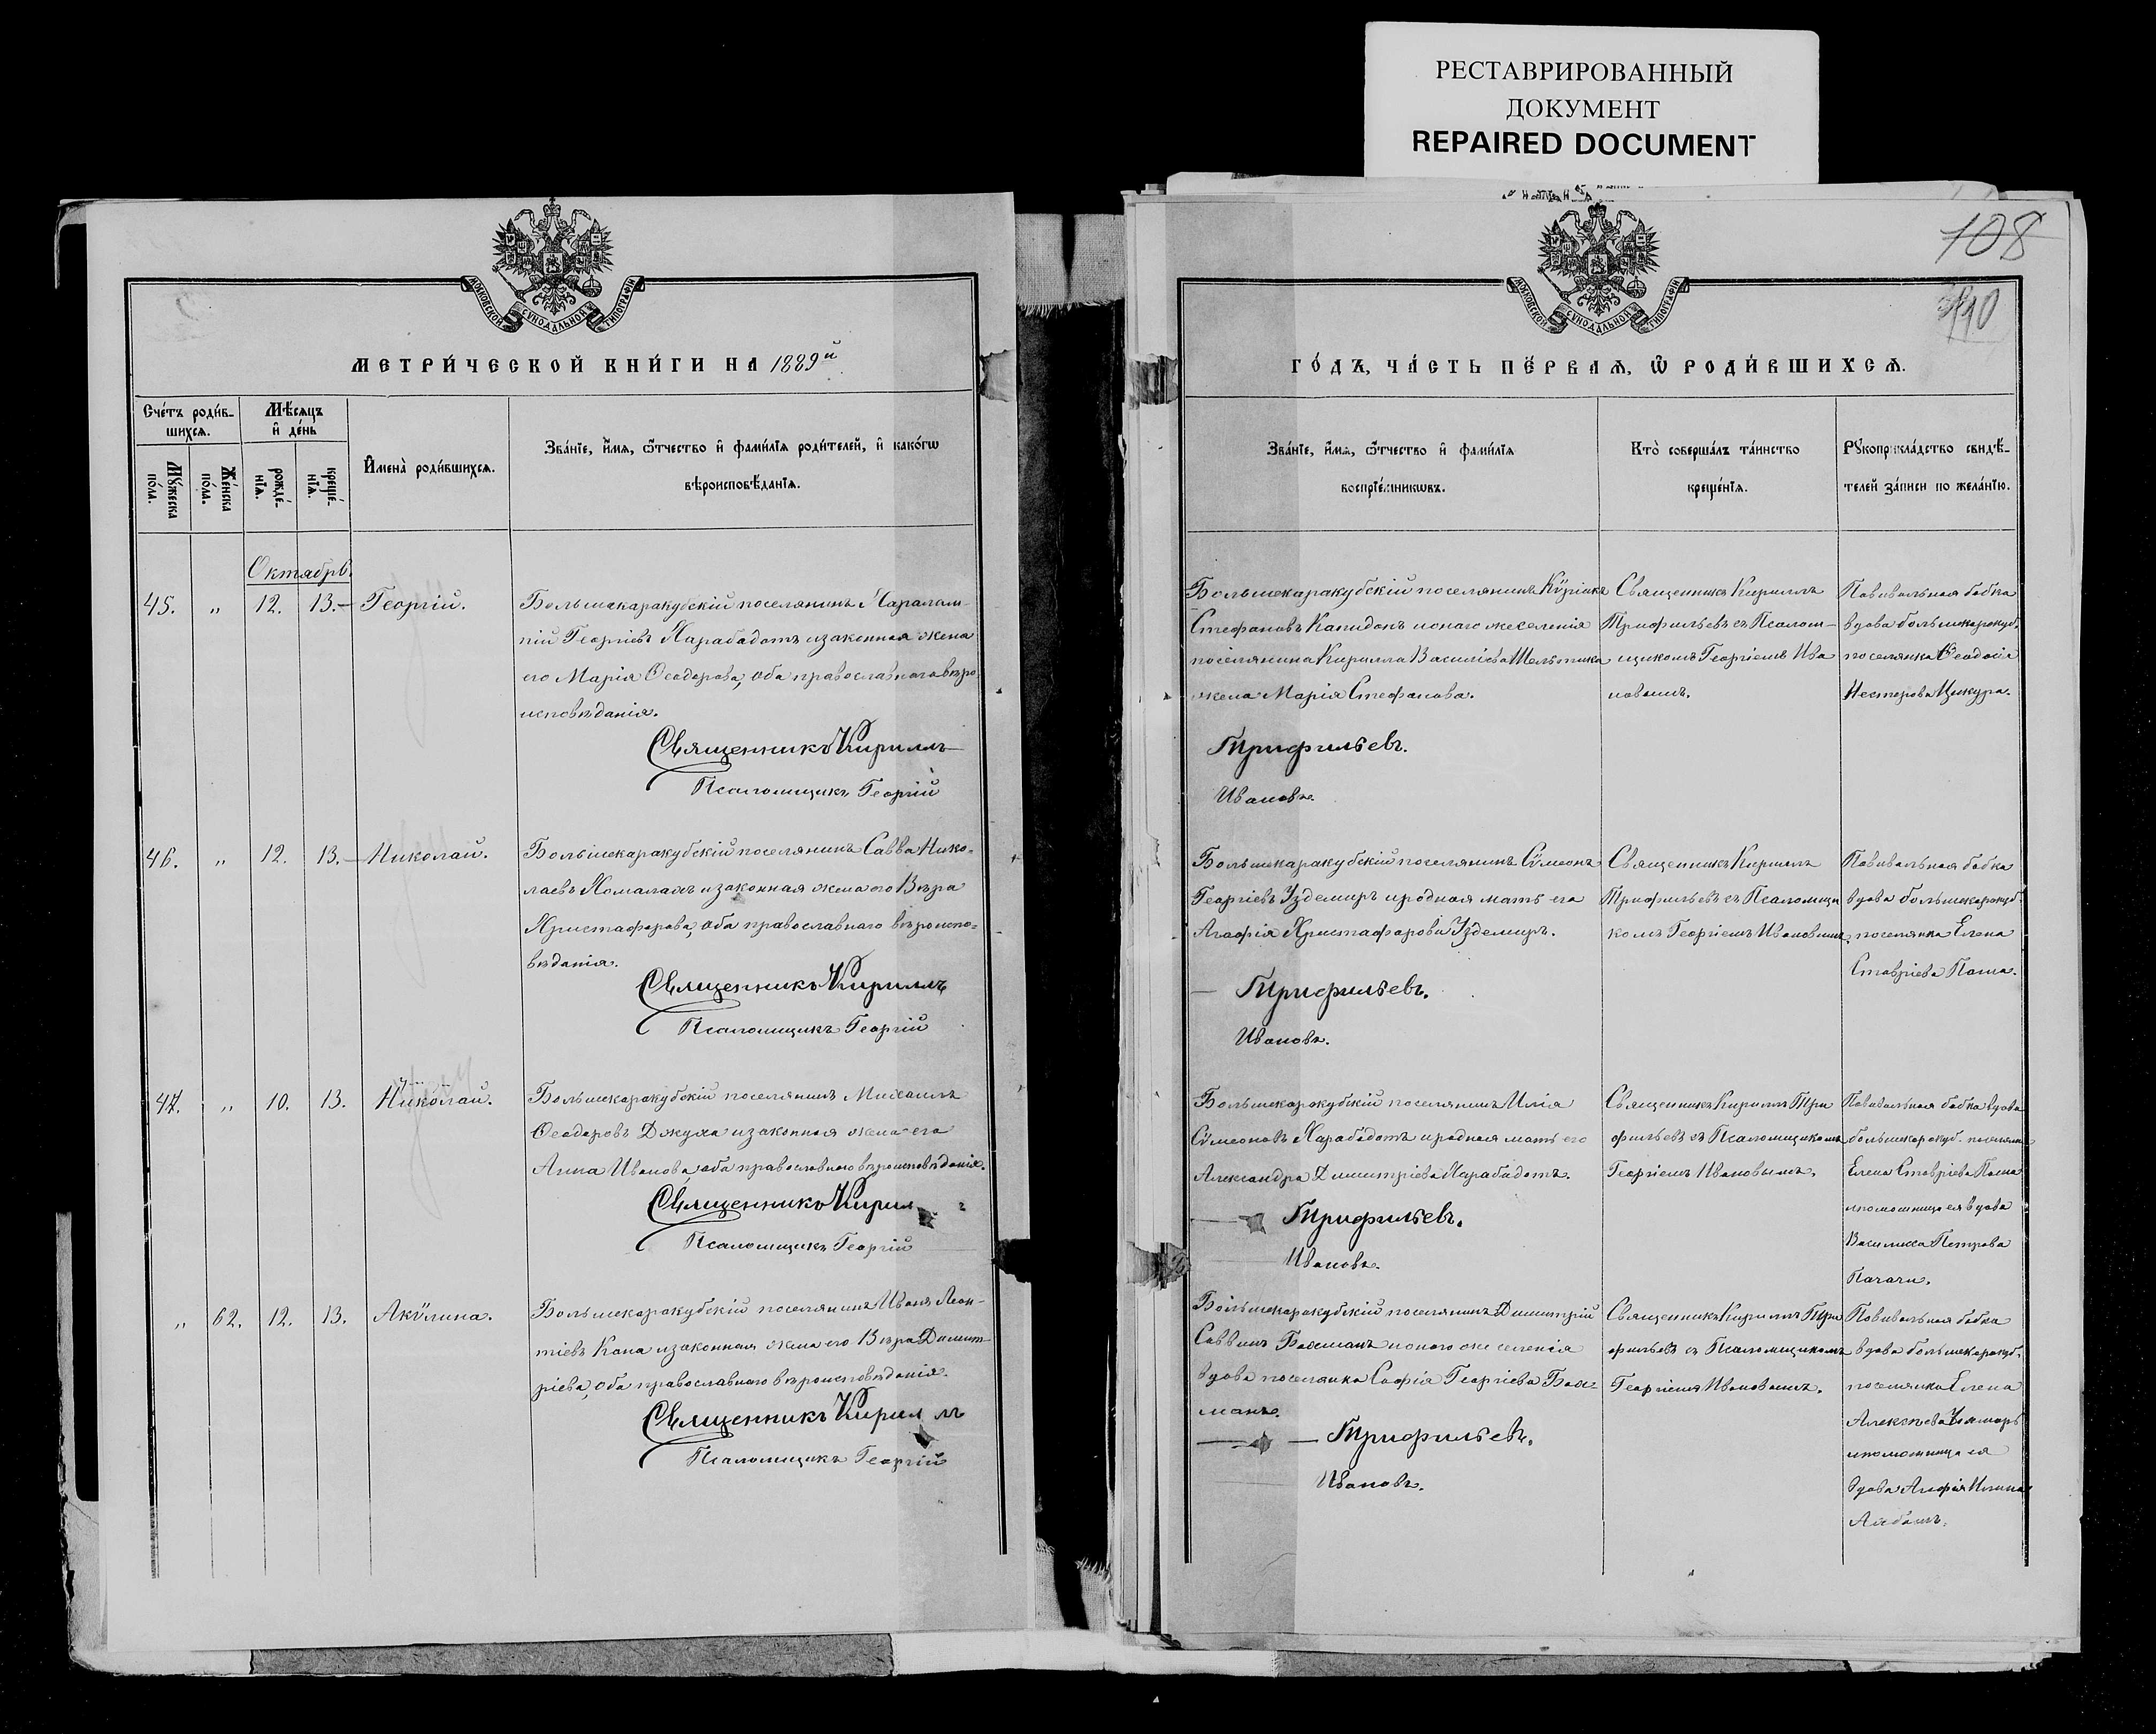 РЕСТАВРИРОВАННЫЙ
ДОКУМЕНТ
REPAIRED DOCUMENT
108
МОСКОВСКОЙ СѴНОДАЛЬНОЙ ТИПОГРАФІИ
МЕТРИ́ЧЕСКОЙ КНИ́ГИ НА 1889й
Сче́тъ роди́в-
шихсѧ.
Мѹ́жеска
по́ла.
Же́нска
по́ла.
Мѣ́сѧцъ
и҆ де́нь
рожде́-
нїѧ.
креще́-
нїѧ.
И҆мена̀ роди́вшихсѧ.
Зва́нїе, и҆́мѧ, ѻ҆́тчество и҆ фами́лїѧ роди́телей, и҆ како́гѡ
вѣроисповѣ́данїѧ.
Октябрь.
45. „ 12. 13. Георгій.
Большекаракубскій поселянинъ Харалам-
пій Георгіевъ Харабадотъ и законная жена
его Марія Ѳеодорова, оба православнаго вѣро
исповѣданія.
Священникъ Кириллъ
Псаломщикъ Георгій
46. „ 12. 13. Николай.
Большекаракубскій поселянинъ Савва Нико-
лаевъ Хомалахъ и законная жена его Вѣра
Христофорова, оба православнаго вѣроиспо-
вѣданія.
Священникъ Кириллъ
Псаломщикъ Георгій
47. „ 10. 13. Николай.
Большекаракубскій поселянинъ Михаилъ
Ѳеодоровъ Джуха и законная жена его
Анна Иванова, оба православнаго вѣроисповѣданія.
Священникъ Кирил
Псаломщикъ Георгій
„ 62. 12. 13. Акѵлина.
Большекаракубскій поселянинъ Иванъ Леон-
тіевъ Капа и законная жена его Вѣра Димит-
ріева, оба православнаго вѣроисповѣданія.
Священникъ Кириллъ
Псаломщикъ Георгій
МОСКОВСКОЙ СѴНОДАЛЬНОЙ ТИПОГРАФІИ
ГО́ДЪ, ЧА́СТЬ ПЕ́РВАѦ, Ѡ҆ РОДИ́ВШИХСѦ.
Зва́нїе, и҆́мѧ, ѻ҆́тчество и҆ фами́лїѧ
воспрїе́мникѡвъ.
Кто̀ соверша́лъ та́инство
креще́нїѧ.
Рѹкоприкла́дство свидѣ́-
телей за́писи по жела́нїю.
Большекаракубскій поселянинъ Кѵріакъ
Стефановъ Капидонъ и онаго же селенія
поселянина Кирилла Василіева Шельтика
жена Марія Стефанова.
Священникъ Кириллъ
Трифильевъ съ Псалом-
щикомъ Георгіемъ Ива
новымъ.
Повивальная бабка
вдова большекаракуб.
поселянка Ѳеодосія
Нестерова Цикура.
Трифильевъ.
Ивановъ.
Большекаракубскій поселянинъ Сѵмеонъ
Георгіевъ Уздемиръ и родная мать его
Агафія Христафорова Уздемиръ.
Священникъ Кириллъ
Трифильевъ съ Псаломщи
комъ Георгіемъ Ивановымъ.
Повивальная бабка
вдова большекаракуб.
поселянка Елена
Ставріева Паша.
Трифильевъ.
Ивановъ.
Большекаракубскій поселянинъ Илія
Сѵмеоновъ Харабадотъ и родная мать его
Александра Димитріева Харабадотъ.
Священникъ Кириллъ Три
фильевъ съ Псаломщикомъ
Георгіемъ Ивановымъ.
Повивальная бабка вдова
большекаракуб. поселянка
Елена Ставріева Паша
и помощница ея вдова
Василиса Петрова
Папачи.
Трифильевъ.
Ивановъ.
Большекаракубскій поселянинъ Димитрій
Саввинъ Бахсманъ и оного же селенія
вдова поселянка Софія Георгіева Бахс-
манъ.
Священникъ Кириллъ Три
фильевъ съ Псаломщикомъ
Георгіемъ Ивановымъ.
Повивальная бабка
вдова большекаракуб.
поселянка Елена
Алексѣева
и помощница ея
вдова Агафія Ильина
Трифильевъ.
Ивановъ.